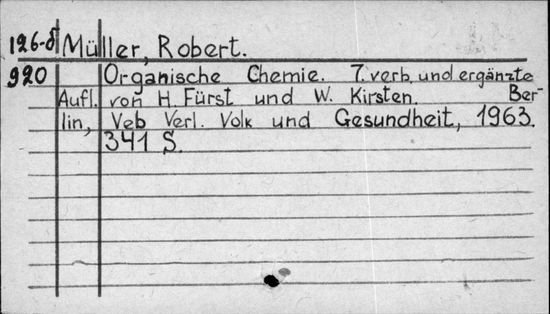 126-d Müller, Robert.
920 Organische Chemie. 7. verb. und ergänzte
Aufl. von H. Fürst und W. Kirsten. Ber-
lin, Veb Verl. Volk und Gesundheit, 1963.
341 S.